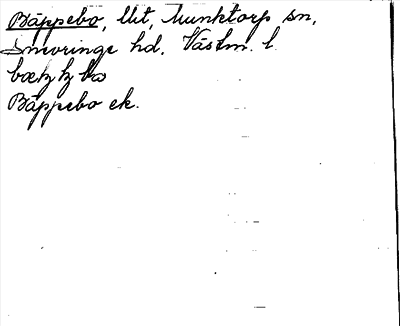 Bäppebo, Ut, Munktorp sn,
Snevringe hd. Västm. l.
Bäppebo ek.